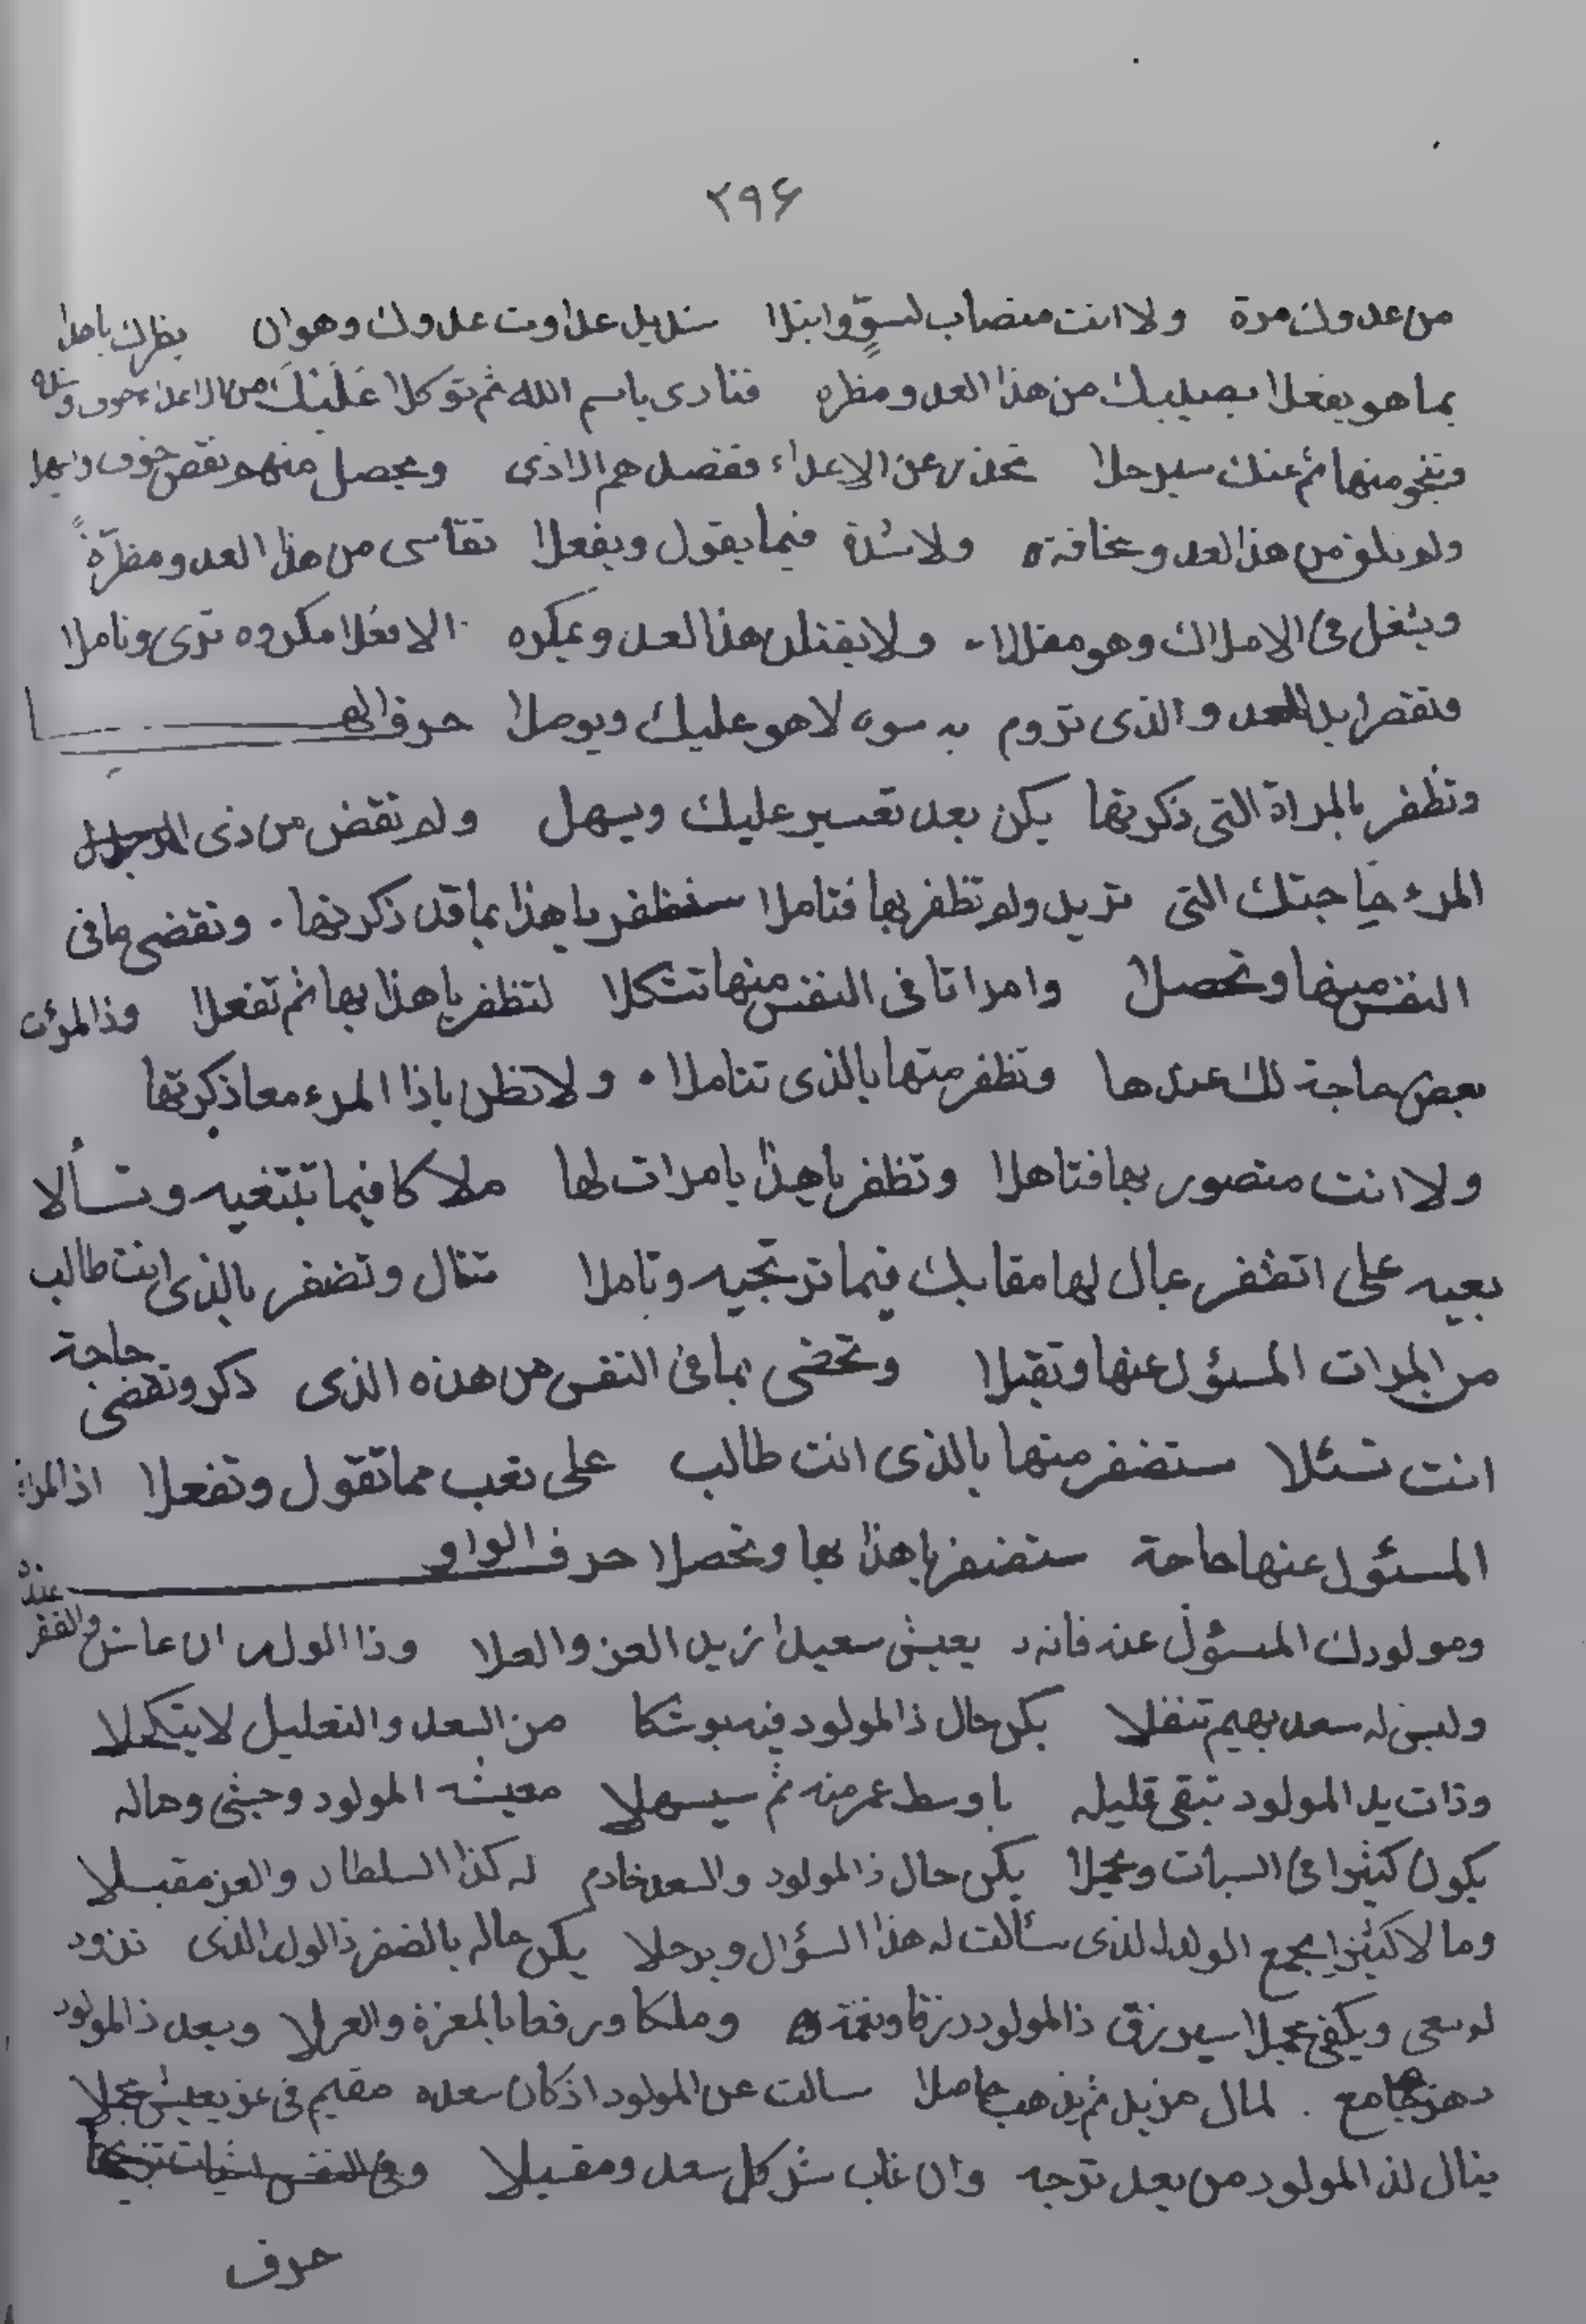 ٢٩۶
من عدوك مرة ولا انت منصاب لسوٍّ وابتلا شديد عداوت عدوك وهوان يظرك باهذا
بما هو يفعلا يصيبك من هذا العدو مظره فنادى باسم الله ثم توكلا عَلَيْكَ من الاعداء خوف وشده
وتنجو منها ثم عنك سيرحلا تحذر عن الاعداء فقصدهم الاذى ويحصل منهم نقص خوف
ولم تلق من هذا العدو مخافة ولا شدة فيما يقول ويفعلا تقاسى من هذا العدو مظرّةً
ويشغل فى الاملاك وهو مقللا ولا يقتلن هذا العدو بمكره الا فعلا مكروه ترى وتاملا
العدو الذى تروم به سوء لا هو عليك ويوصلا حرف الهـ
وتظفر بالمراة التى ذكرتها يكن بعد تعسير عليك ويسهل ولم تقض من ذى
المرء حاجتك التى تريد ولم تظفر بها فتاملا ستظفر ياهذا بما قد ذكرتها . وتقضى ما فى
النفس منها وتحصلا وامراتا فى النفس منها تشكلا لتظفر ياهذا بها ثم تفعلا وذا المرأت
بعض حاجة لك عندها وتظفر منها بالذى تتاملا . ولا تظن ياذا المرء معا ذكرتها
ولا انت متصور بها فتاهلا وتظفر ياهذا بامرات لها ملاكا فيما تبتغيه وتسألا
بعيه على اتظفر عبال لها مقابك فيما ترتجيه وتاملا تنال وتضفر بالذى انت طالب
من المرات المسؤل عنها وتقبلا وتحضى بما فى النفس من هذه الذى ذكر وتقضى حاجة
انت تسئلا ستضفر منها بالذى انت طالب على تعب مما تقول وتفعلا اذا المراة
المسئول عنها حاجة ستضفر ياهذا بها وتحصلا حرف الواو
ومولودك المسؤل عنه فانه يعيش سعيدا نزيد العز والعلا وذا الولد ان عاش والفقر عنده
وليس له سعد بهيم تنفلا يكن حال ذا المولود فيه بوشكا من السعد والتعليل لا يتكملا
وذات يد المولود تبقى قليله باوسط عمر منه ثم سيسهلا معيشه المولود وحبثى وحاله
يكون كثيرا فى السبات وعجلا يكن حال ذا المولود والسعد خادم له كذا السلطان والعز مقبلا
وما لا كثيرا يجمع الولد الذى سألت له هذا السؤال ويرحلا يكن حاله بالضفر ذا الولد الذى تزود
لو سعى ويكفى عجلا سيرزق ذا المولود رزقا ونعمة وملكا ورفعا بالمعزة والعز لا وبعد ذا المولود
جامع . لمال مزيد ثم يذهب حاصلا سالت عن المولود اذ كان سعده مقيم فى عز يعيش عجلا
ينال لذا المولود من بعد ترجه وان غاب شر كل سعد ومقبلا وفى النفس
حرف